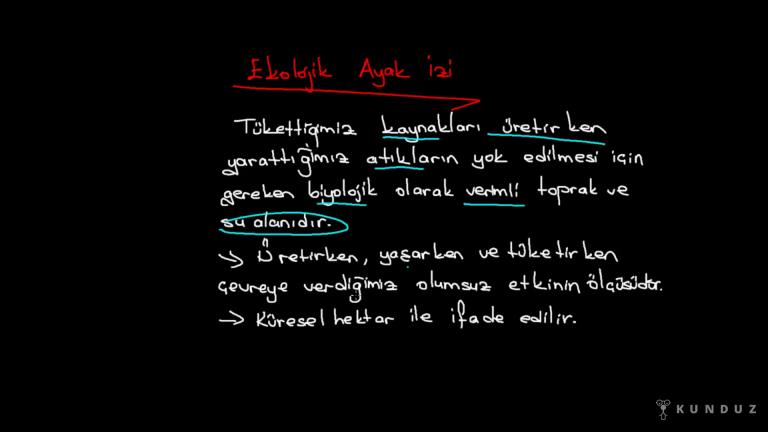 Ekolojik Ayak izi
Tükettiğimiz kaynakları üretirken
yarattığımız atıkların yok edilmesi için
gereken biyolojik olarak verimli toprak ve
su alanıdır.
→ Üretirken, yaşarken ve tüketirken
çevreye verdiğimiz olumsuz etkinin ölçüsüdür.
→ Küresel hektar ile ifade edilir.
KUNDUZ